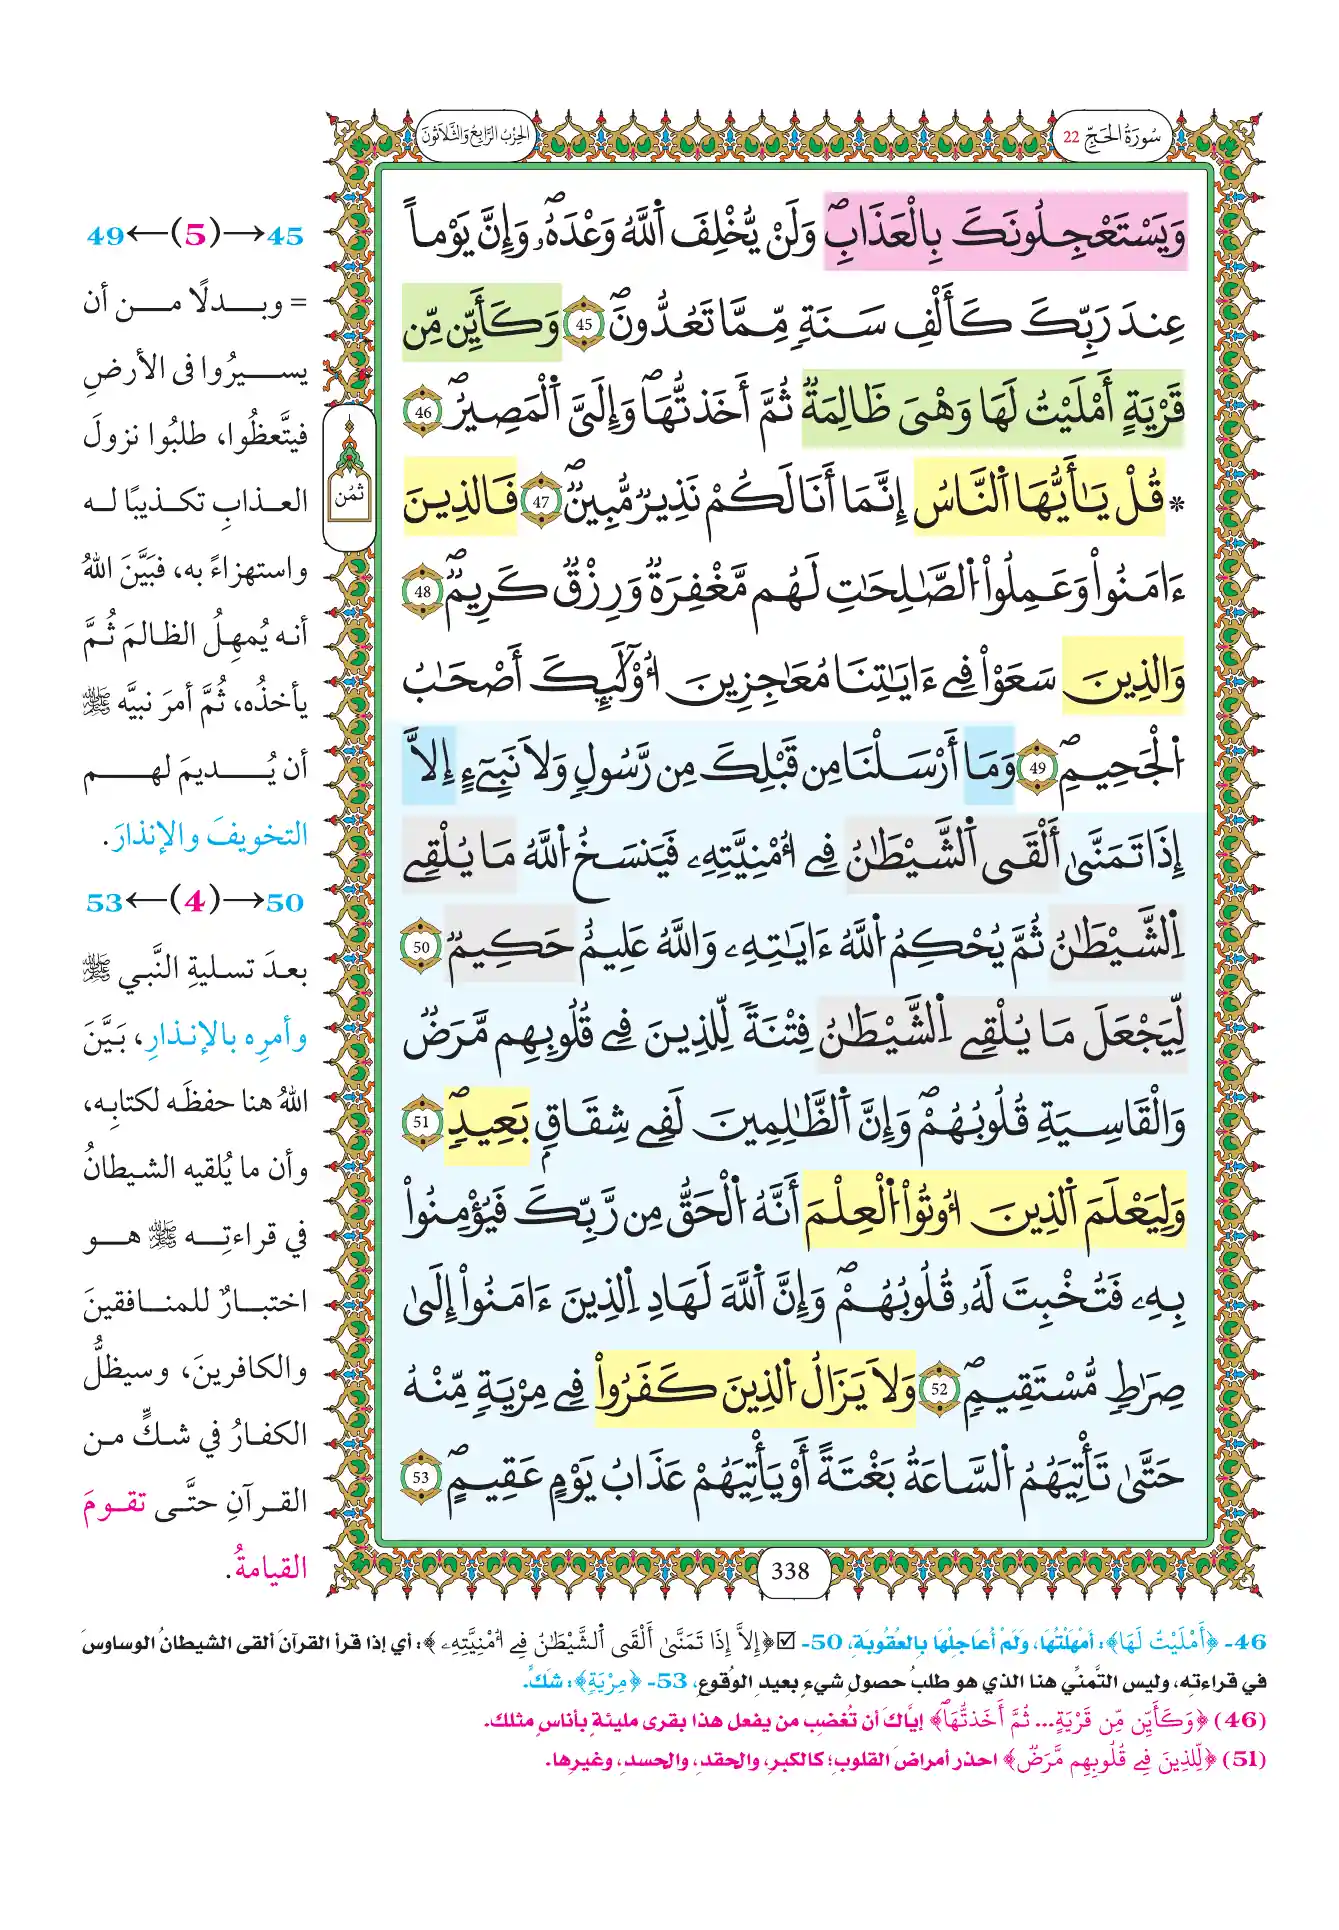 سُورَةُ الحَجِّ 22
الحِزْبُ الرَّابِعُ وَالثَّلَاثُونَ
وَيَسْتَعْجِلُونَكَ بِالْعَذَابِ وَلَنْ يُّخْلِفَ اَللَّهُ وَعْدَهُۥ وَإِنَّ يَوْماً
عِندَ رَبِّكَ كَأَلْفِ سَنَةٍ مِّمَّا تَعُدُّونَ 45 وَكَأَيِّن مِّن
قَرْيَةٍ أَمْلَيْتُ لَهَا وَهْىَ ظَالِمَةٌ ثُمَّ أَخَذتُّهَا وَإِلَىَّ اَلْمَصِيرُ 46
* قُلْ يَٰأَيُّهَا اَلنَّاسُ إِنَّمَا أَنَا لَكُمْ نَذِيرٌ مُّبِينٌ 47 فَالذِينَ
ءَامَنُواْ وَعَمِلُواْ اُلصَّٰلِحَٰتِ لَهُم مَّغْفِرَةٌ وَرِزْقٌ كَرِيمٌ 48
وَالذِينَ سَعَوْاْ فِے ءَايَٰتِنَا مُعَٰجِزِينَ أُوْلَٰٓئِكَ أَصْحَٰبُ
اُلْجَحِيمِ 49 وَمَا أَرْسَلْنَا مِن قَبْلِكَ مِن رَّسُولٍ وَلَا نَبِےٓءٍ اِلَّا
إِذَا تَمَنَّىٰ أَلْقَى اَلشَّيْطَٰنُ فِے أُمْنِيَّتِهِۦ فَيَنسَخُ اُللَّهُ مَا يُلْقِے
اِلشَّيْطَٰنُ ثُمَّ يُحْكِمُ اُللَّهُ ءَايَٰتِهِۦ وَاللَّهُ عَلِيمٌ حَكِيمٌ 50
لِّيَجْعَلَ مَا يُلْقِے اِلشَّيْطَٰنُ فِتْنَةً لِّلذِينَ فِے قُلُوبِهِم مَّرَضٌ
وَالْقَاسِيَةِ قُلُوبُهُمْ وَإِنَّ اَلظَّٰلِمِينَ لَفِے شِقَاقٍ بَعِيدٍ 51
وَلِيَعْلَمَ اَلذِينَ أُوتُواْ اُلْعِلْمَ أَنَّهُ اُلْحَقُّ مِن رَّبِّكَ فَيُؤْمِنُواْ
بِهِۦ فَتُخْبِتَ لَهُۥ قُلُوبُهُمْ وَإِنَّ اَللَّهَ لَهَادِ اِلذِينَ ءَامَنُواْ إِلَىٰ
صِرَٰطٍ مُّسْتَقِيمٍ 52 وَلَا يَزَالُ اُلذِينَ كَفَرُواْ فِے مِرْيَةٍ مِّنْهُ
حَتَّىٰ تَأْتِيَهُمُ اُلسَّاعَةُ بَغْتَةً أَوْ يَأْتِيَهُمْ عَذَابُ يَوْمٍ عَقِيمٍ 53
ثُمُن
338
45→(5)←49
= وبدلًا من أن
يسيرُوا فى الأرضِ
فيتَّعظُوا، طلبُوا نزولَ
العذابِ تكذيبًا له
واستهزاءً به، فبَيَّنَ اللهُ
أنه يُمهِلُ الظالمَ ثُمَّ
يأخذُه، ثُمَّ أمرَ نبيَّه ﷺ
أن يُديمَ لهم
التخويفَ والإنذارَ.
50→(4)←53
بعدَ تسليةِ النَّبي ﷺ
وأمرِه بالإنذارِ، بَيَّنَ
اللهُ هنا حفظَه لكتابِه،
وأن ما يُلقيه الشيطانُ
في قراءتِه ﷺ هو
اختبارٌ للمنافقينَ
والكافرينَ، وسيظلُّ
الكفارُ في شكٍّ من
القرآنِ حتَّى تقومَ
القيامةُ.
46- ﴿أَمْلَيْتُ لَهَا﴾: أمْهَلْتُهَا، وَلَمْ أُعَاجِلْهَا بِالعُقُوبَةِ، 50- ☑﴿إِلَّا إِذَا تَمَنَّىٰ أَلْقَى اَلشَّيْطَٰنُ فِے أُمْنِيَّتِهِۦ﴾: أي إذا قرأ القرآنَ ألقى الشيطانُ الوساوسَ
في قراءتِه، وليس التَّمنِّي هنا الذي هو طلبُ حصولِ شيءٍ بعيدِ الوُقوعِ، 53- ﴿مِرْيَةٍ﴾: شَكٍّ.
(46) ﴿وَكَأَيِّن مِّن قَرْيَةٍ... ثُمَّ أَخَذتُّهَا﴾ إيَّاكَ أن تُغضِب من يفعل هذا بقرى مليئةٍ بأناسٍ مثلك.
(51) ﴿لِّلذِينَ فِے قُلُوبِهِم مَّرَضٌ﴾ احذر أمراضَ القلوبِ؛ كالكبرِ، والحقدِ، والحسدِ، وغيرِها.